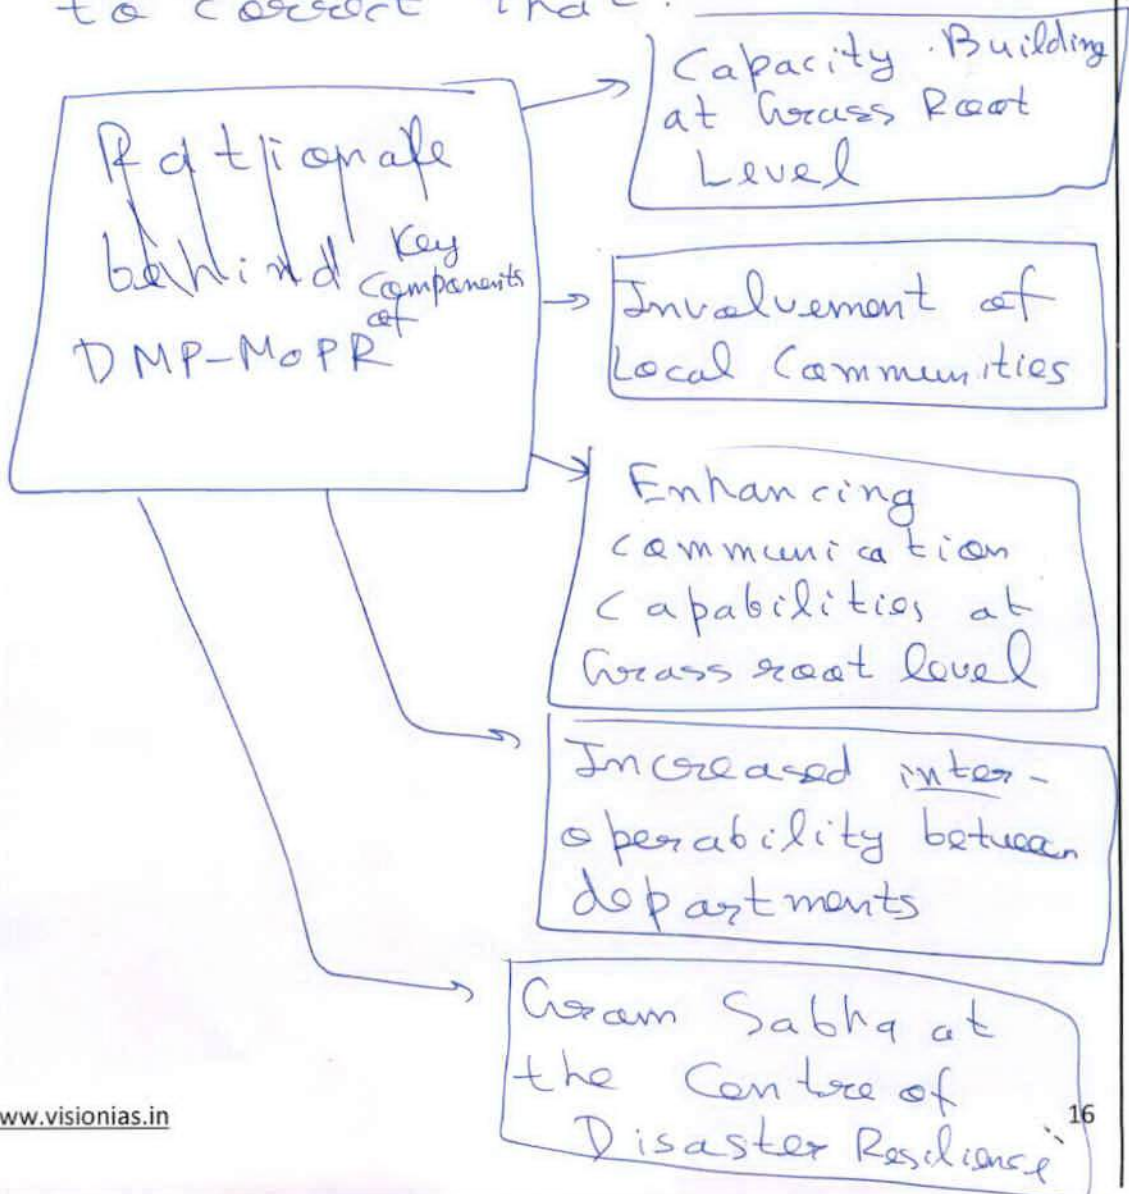 to correct that.
Rationale
behind Key
Components
of
DMP-MoPR
Capacity Building
at Grass Root
Level
Involvement of
Local Communities
Enhancing
communication
Capabilities at
Grass root level
Increased inter-
operability between
departments
Gram Sabha at
the Centre of
Disaster Resilience
ww.visionias.in
16